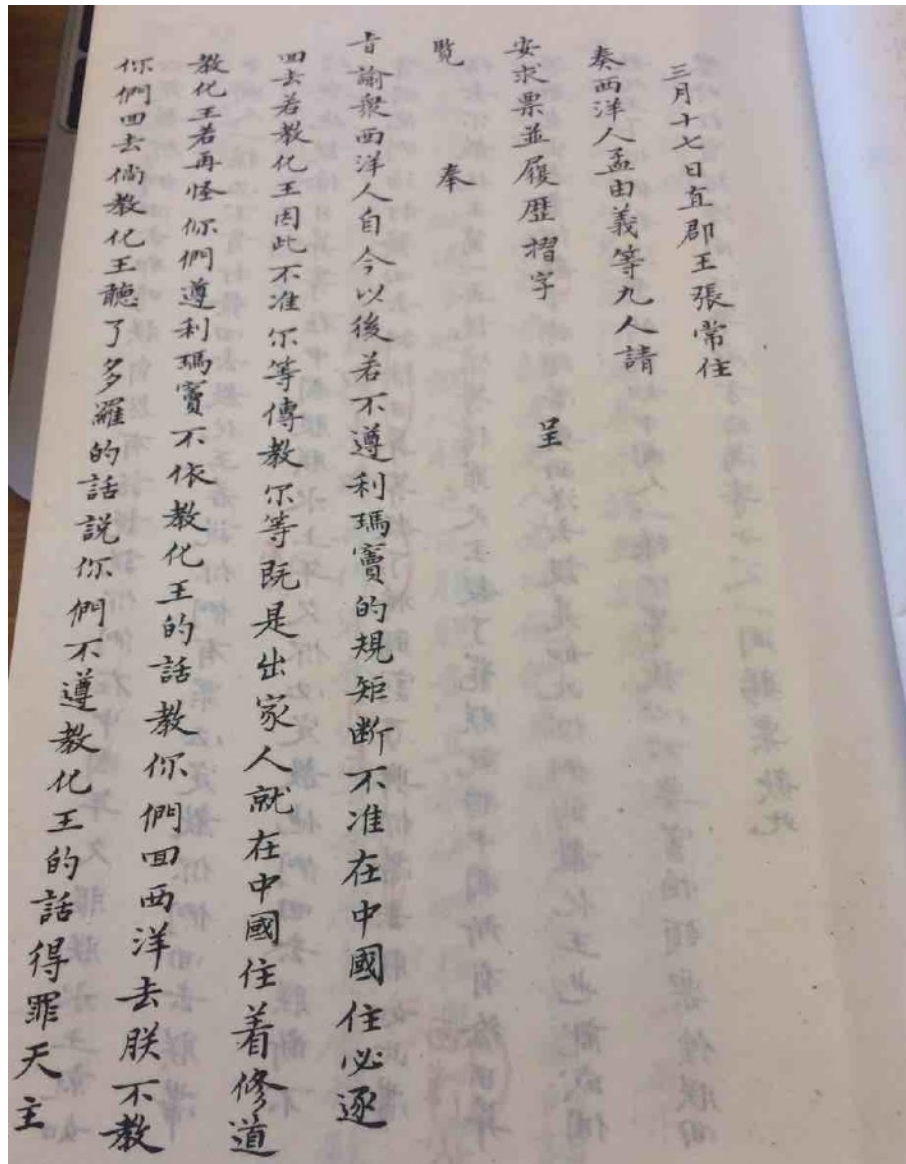 三月十七日直郡王張常住
奏西洋人孟由義等九人請
安求票並履歷摺字 呈
覧 奉
㫖諭衆西洋人自今以後若不遵利瑪竇的規矩斷不准在中國住必逐
囬去若教化王因此不准尔等傳教尔等既是出家人就在中國住着修道
教化王若再怪你們遵利瑪竇不依教化王的話教你們囬西洋去朕不教
你們囬去倘教化王聽了多羅的話說你們不遵教化王的話得罪天主